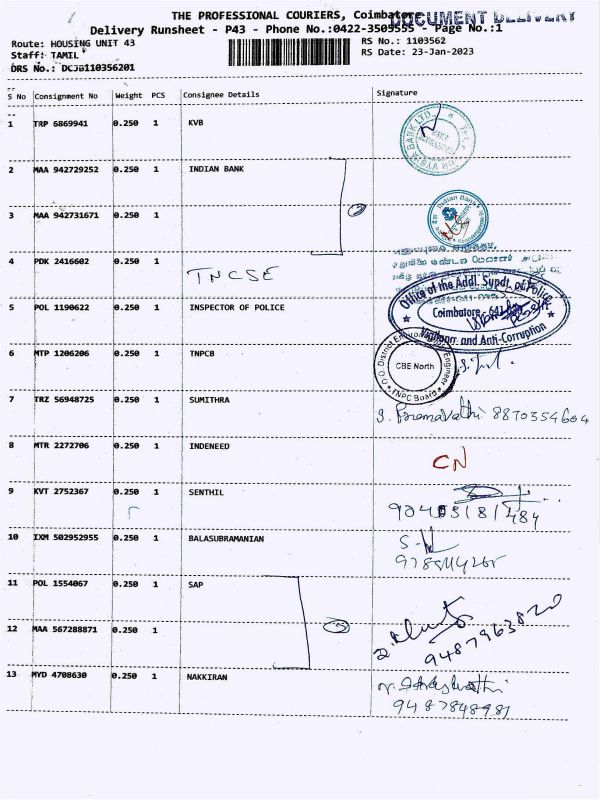 THE PROFESSIONAL COURIERS, Coimbatore
DOCUMENT DELIVERY
Delivery Runsheet - P43 - Phone No.:0422-3505555 - Page No.:1
Route: HOUSING UNIT 43 RS No.: 1103562
Staff: TAMIL RS Date: 23-Jan-2023
DRS No.: DCJB110356201
S No Consignment No Weight PCS Consignee Details Signature
1 TRP 6869941 0.250 1 KVB
2 MAA 942729252 0.250 1 INDIAN BANK
Indian Bank
3 MAA 942731671 0.250 1
4 PDK 2416602 0.250 1 TNCSE
Office of the Addl. Supdt. of Police
5 POL 1190622 0.250 1 INSPECTOR OF POLICE
Coimbatore - 641
Vigilance and Anti-Corruption
6 MTP 1206206 0.250 1 TNPCB
CBE North
TNPC Board
7 TRZ 56948725 0.250 1 SUMITHRA
8870354604
8 MTR 2272706 0.250 1 INDENEED CN
9 KVT 2752367 0.250 1 SENTHIL
10 IXM 502952955 0.250 1 BALASUBRAMANIAN
11 POL 1554067 0.250 1 SAP
12 MAA 567288871 0.250 1
9487963820
13 MYD 4708630 0.250 1 NAKKIRAN
9487848981